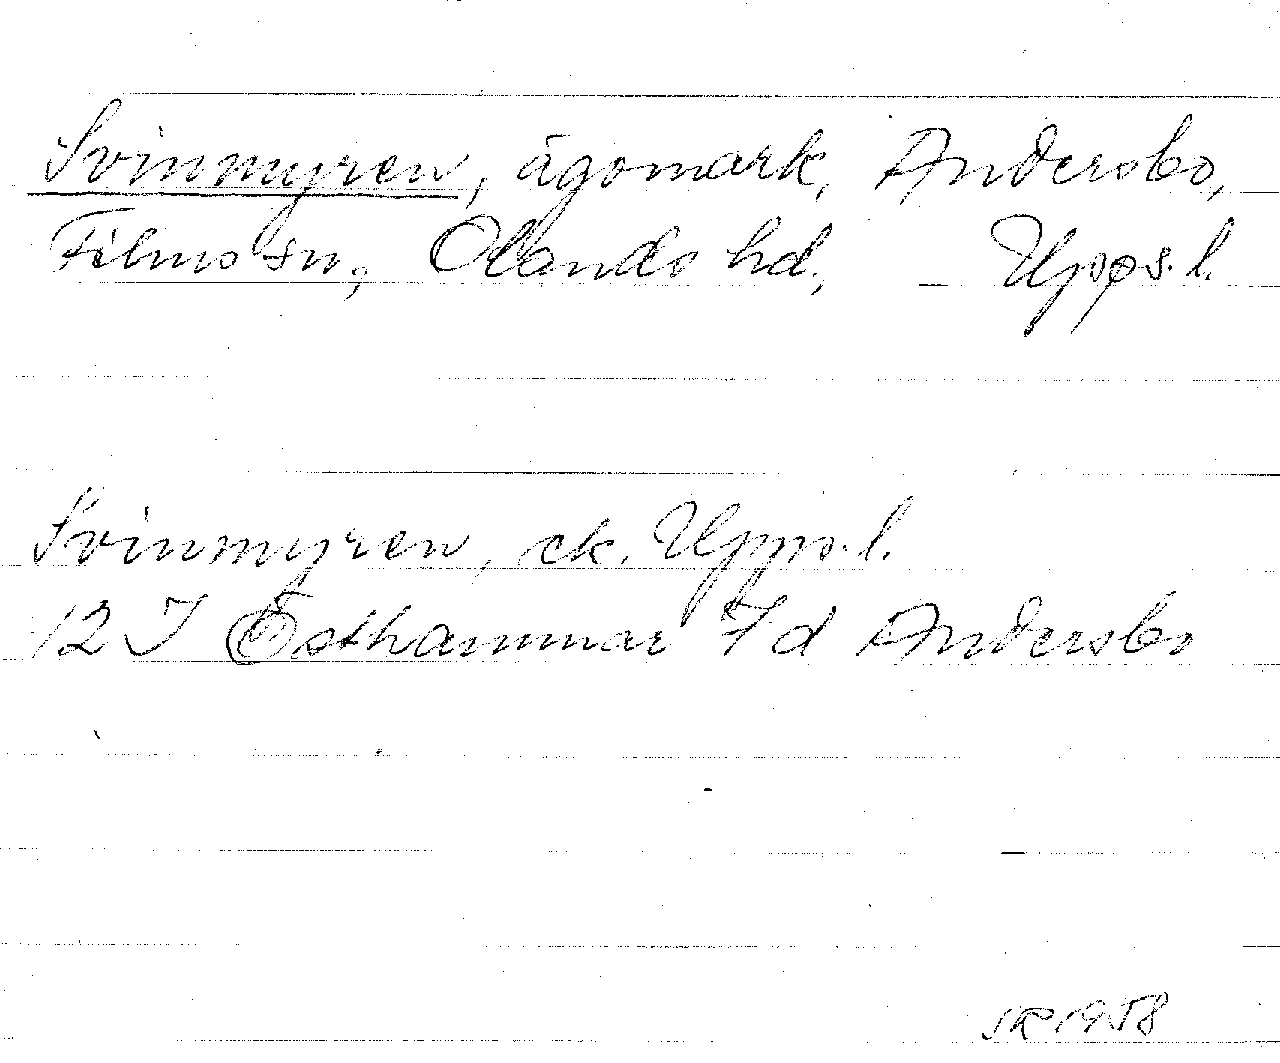 Svinmyren, ägomark, Andersbo,
Films sn, Olands hd, Upps. l.
Svinmyren, ek. Upps. l.
12 I Östhammar 7d Andersbo
1958